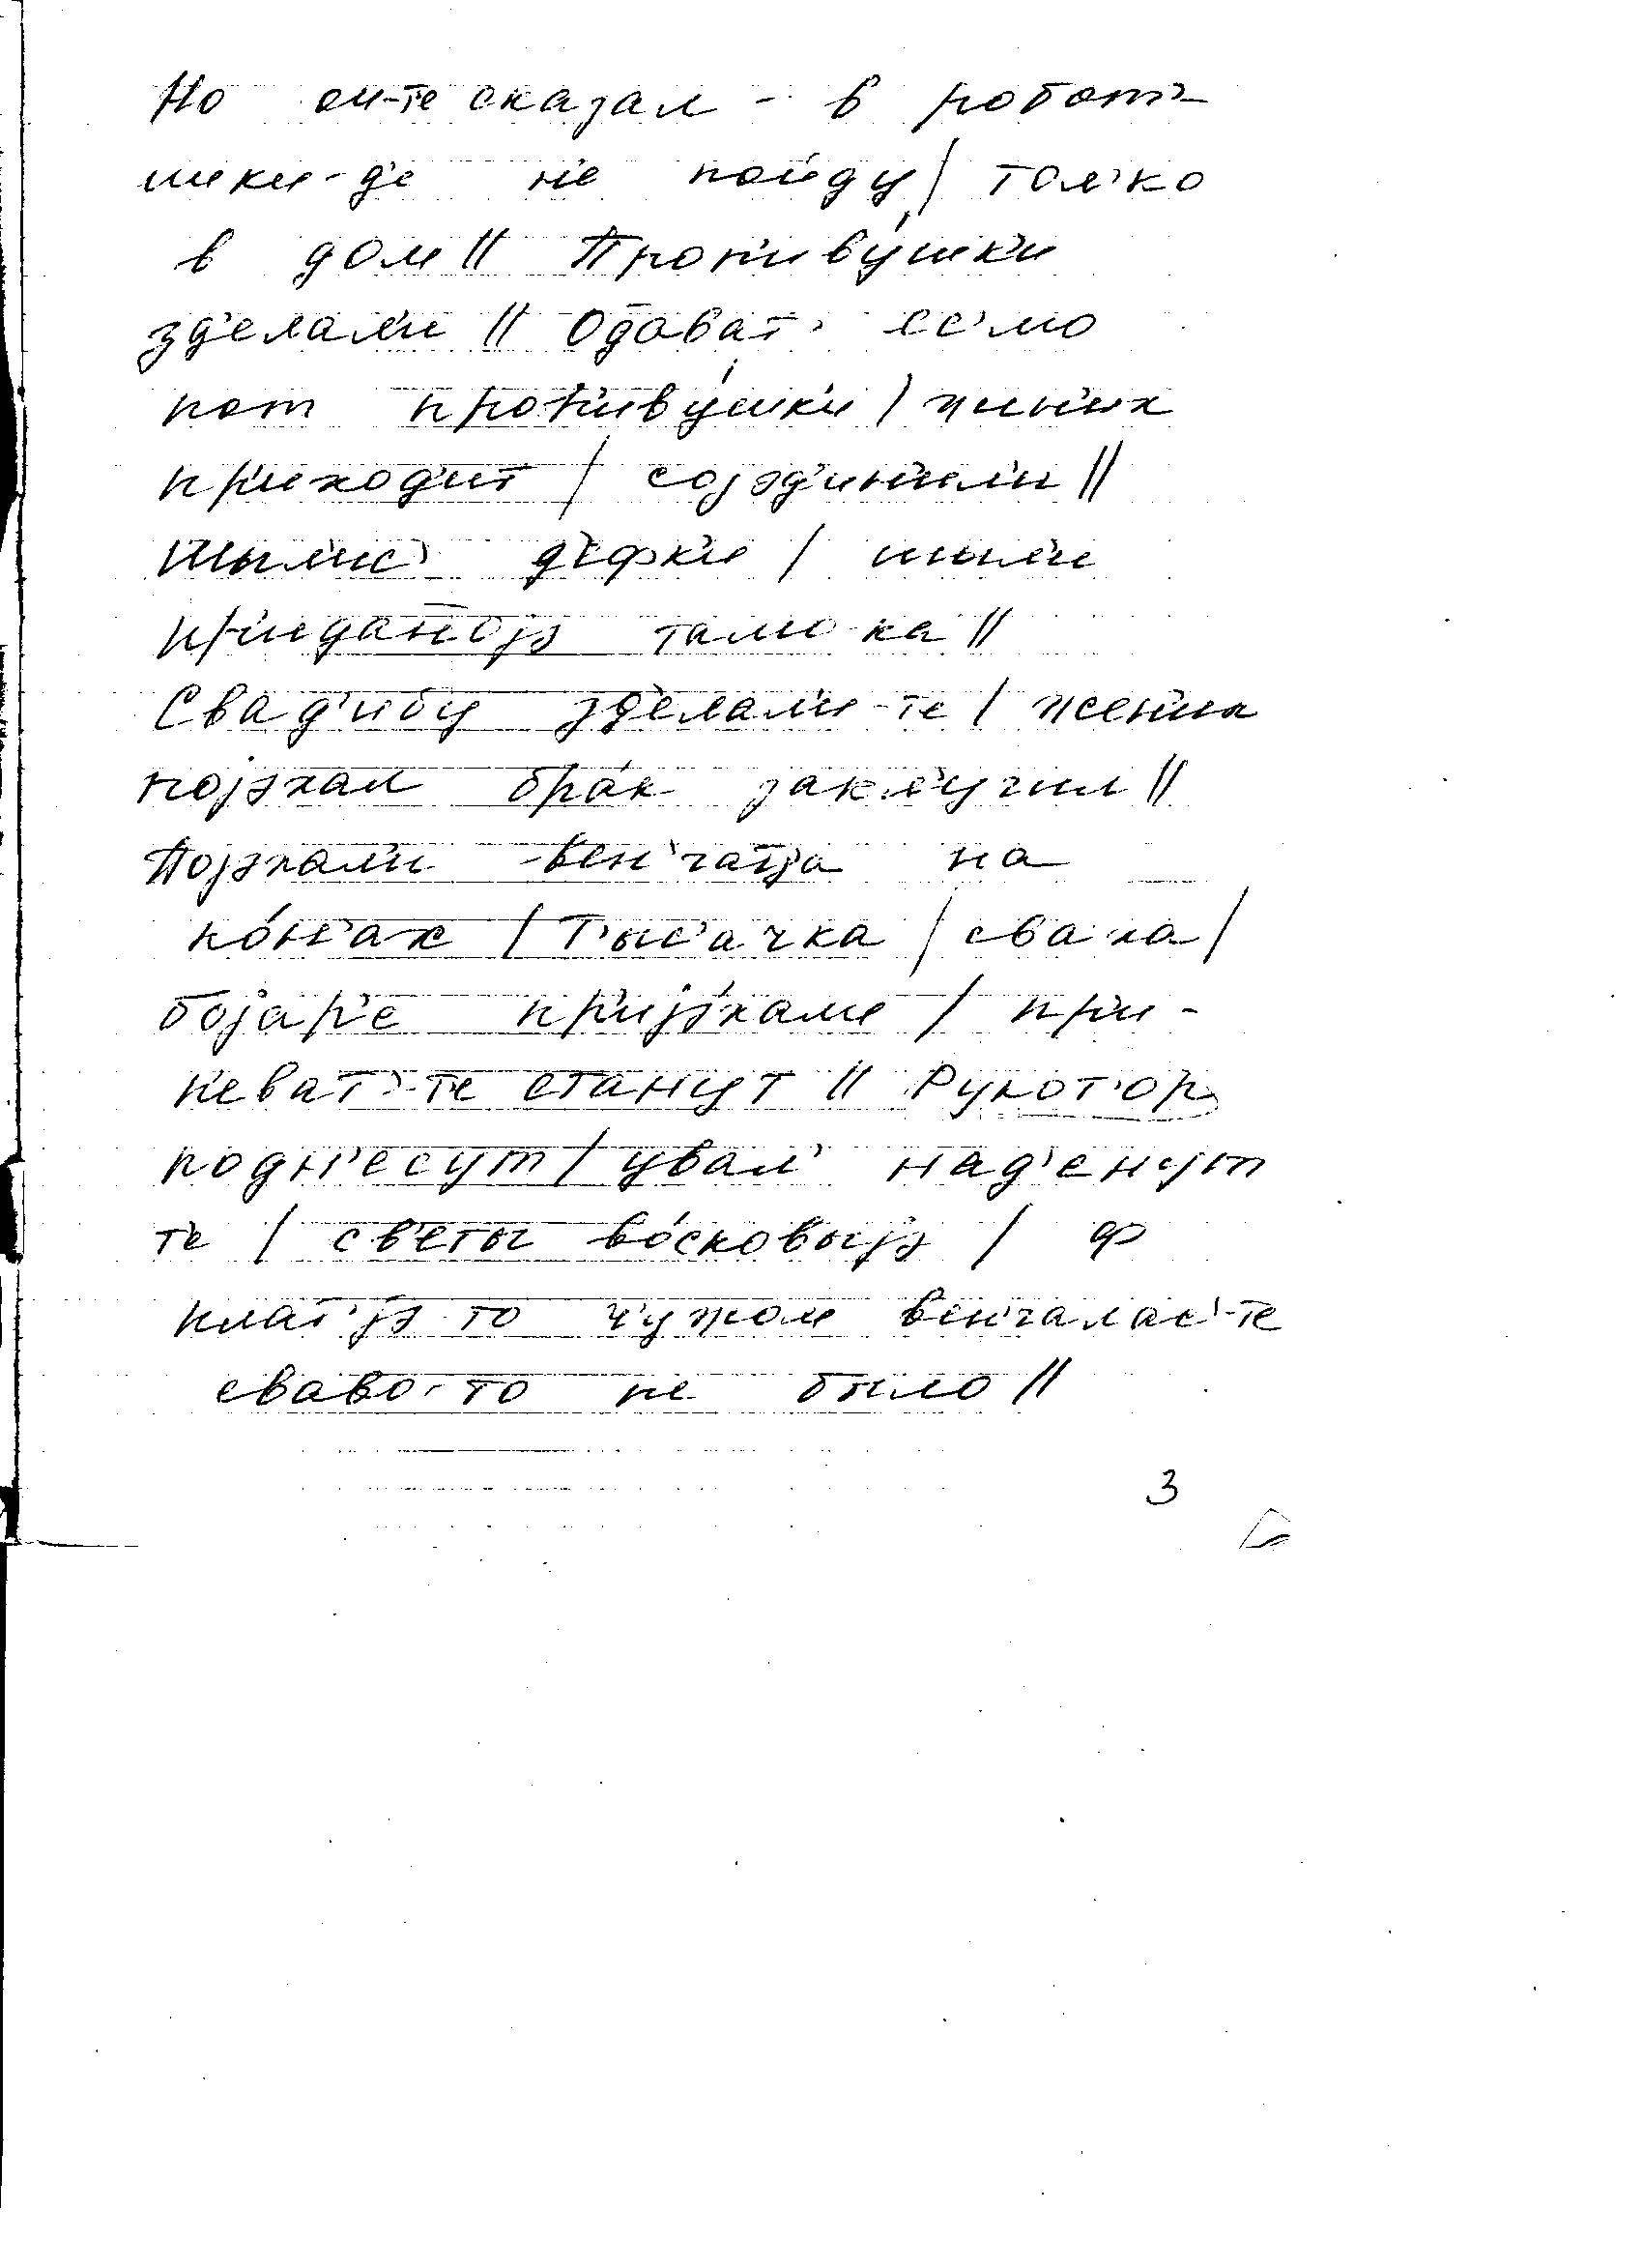 Но он-те сказал - в робот'-
ники-д'е н'е пойду / тол'ко
в дом // Прот'иву́шки
зд'елал'и // Одават'
пот прот'иву́шки / жын'их
пр'иход'ит / сојэд'ин'ил'и //
Шыл'ис' д'ефк'и / шыл'и
пр'иданојэ тамо-ка //
Свад'ибу зд'елал'и-т'е / жен'их
појэхал бра́к закл'учил //
Појэхал'и в'ен'чаџа на
ко́н'ах / Тыс'ачка / сваха /
бојар'е пр'ијэ́хал'и / пр'и-
п'еват'-т'е станут // Рукот'ор
подн'есут / увал' над'енут
т'е / св'еты во́сковыјэ / ф
плат'јэ-то чужом в'ен'чалас'-т'е
сваво-то не было //
3